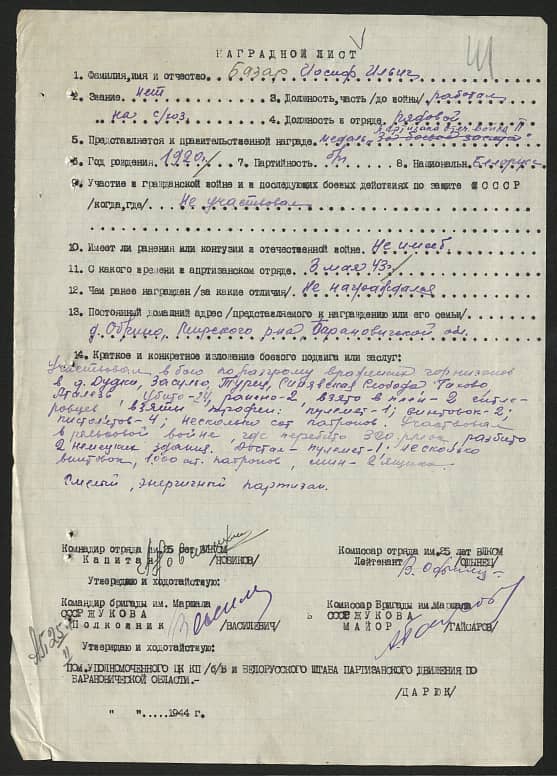 НАГРАДНОЙ ЛИСТ
1. Фамилия, имя и отчество Базар Иосиф Ильич
2. Звание нет 3. Должность, часть /до войны/ работал
на с/хоз. 4. Должность в отряде рядовой
5. Представляется к правительственной награде медаль Партизану Отеч. войны II
За боевые заслуги
6. Год рождения 1920 г. 7. Партийность б/п 8. Национальн. Белорус
9. Участие в гражданской войне и в последующих боевых действиях по защите СССР
/когда, где/ Не участвовал
10. Имеет ли ранения или контузии в отечественной войне. Не имеет
11. С какого времени в апртизанском отряде. 3 мая 43 г.
12. Чем ранее награжден /за какие отличия/. Не награждался
13. Постоянный домашний адрес /представлчмого к награждению или его семьи/
д. Обрино, Мирского р-на Барановичской обл.
14. Краткое и конкретное изложение боевого подвига или заслуг:
Участвовал в бою по разгрому вражеских гарнизонов
в д. Дудки, Засулье, Турец, Синявская Слобода,
Убито-24, ранено-2, взято в плен-2
взяты трофеи: пулемет-1; винтовок-2;
пистолетов-4; несколько сот патронов. Участвовал
в рельсовой войне, где перебито 320 рельс, разбито
2 немецких здания. Достал-пулемет-1, несколько
винтовок, 1000 шт. патронов, мин-2 ящика.
Смелый, энергичный партизан.
Командир отряда им. 25 лет ВЛКСМ
Капитан /НОВИКОВ/
Комиссар отряда им. 25 лет ВЛКСМ
Лейтенант /ОДЫНЕЦ/
Утверждаю и ходотайствую:
Командир бригады им. Маршала
СССР ЖУКОВА
Полковник /ВАСИЛЕВИЧ/
Комиссар Бригады им. Маршала
СССР ЖУКОВА
МАЙОР /ГАЙСАРОВ/
Утверждаю и ходотайствую:
ПОМ. УПОЛНОМОЧЕННОГО ЦК КП /б/Б и БЕЛОРУССКОГО ШТАБА ПАРТИЗАНСКОГО ДВИЖЕНИЯ ПО
БАРАНОВИЧСКОЙ ОБЛАСТИ.-
/ЦАРЮК/
" " .....1944 г.